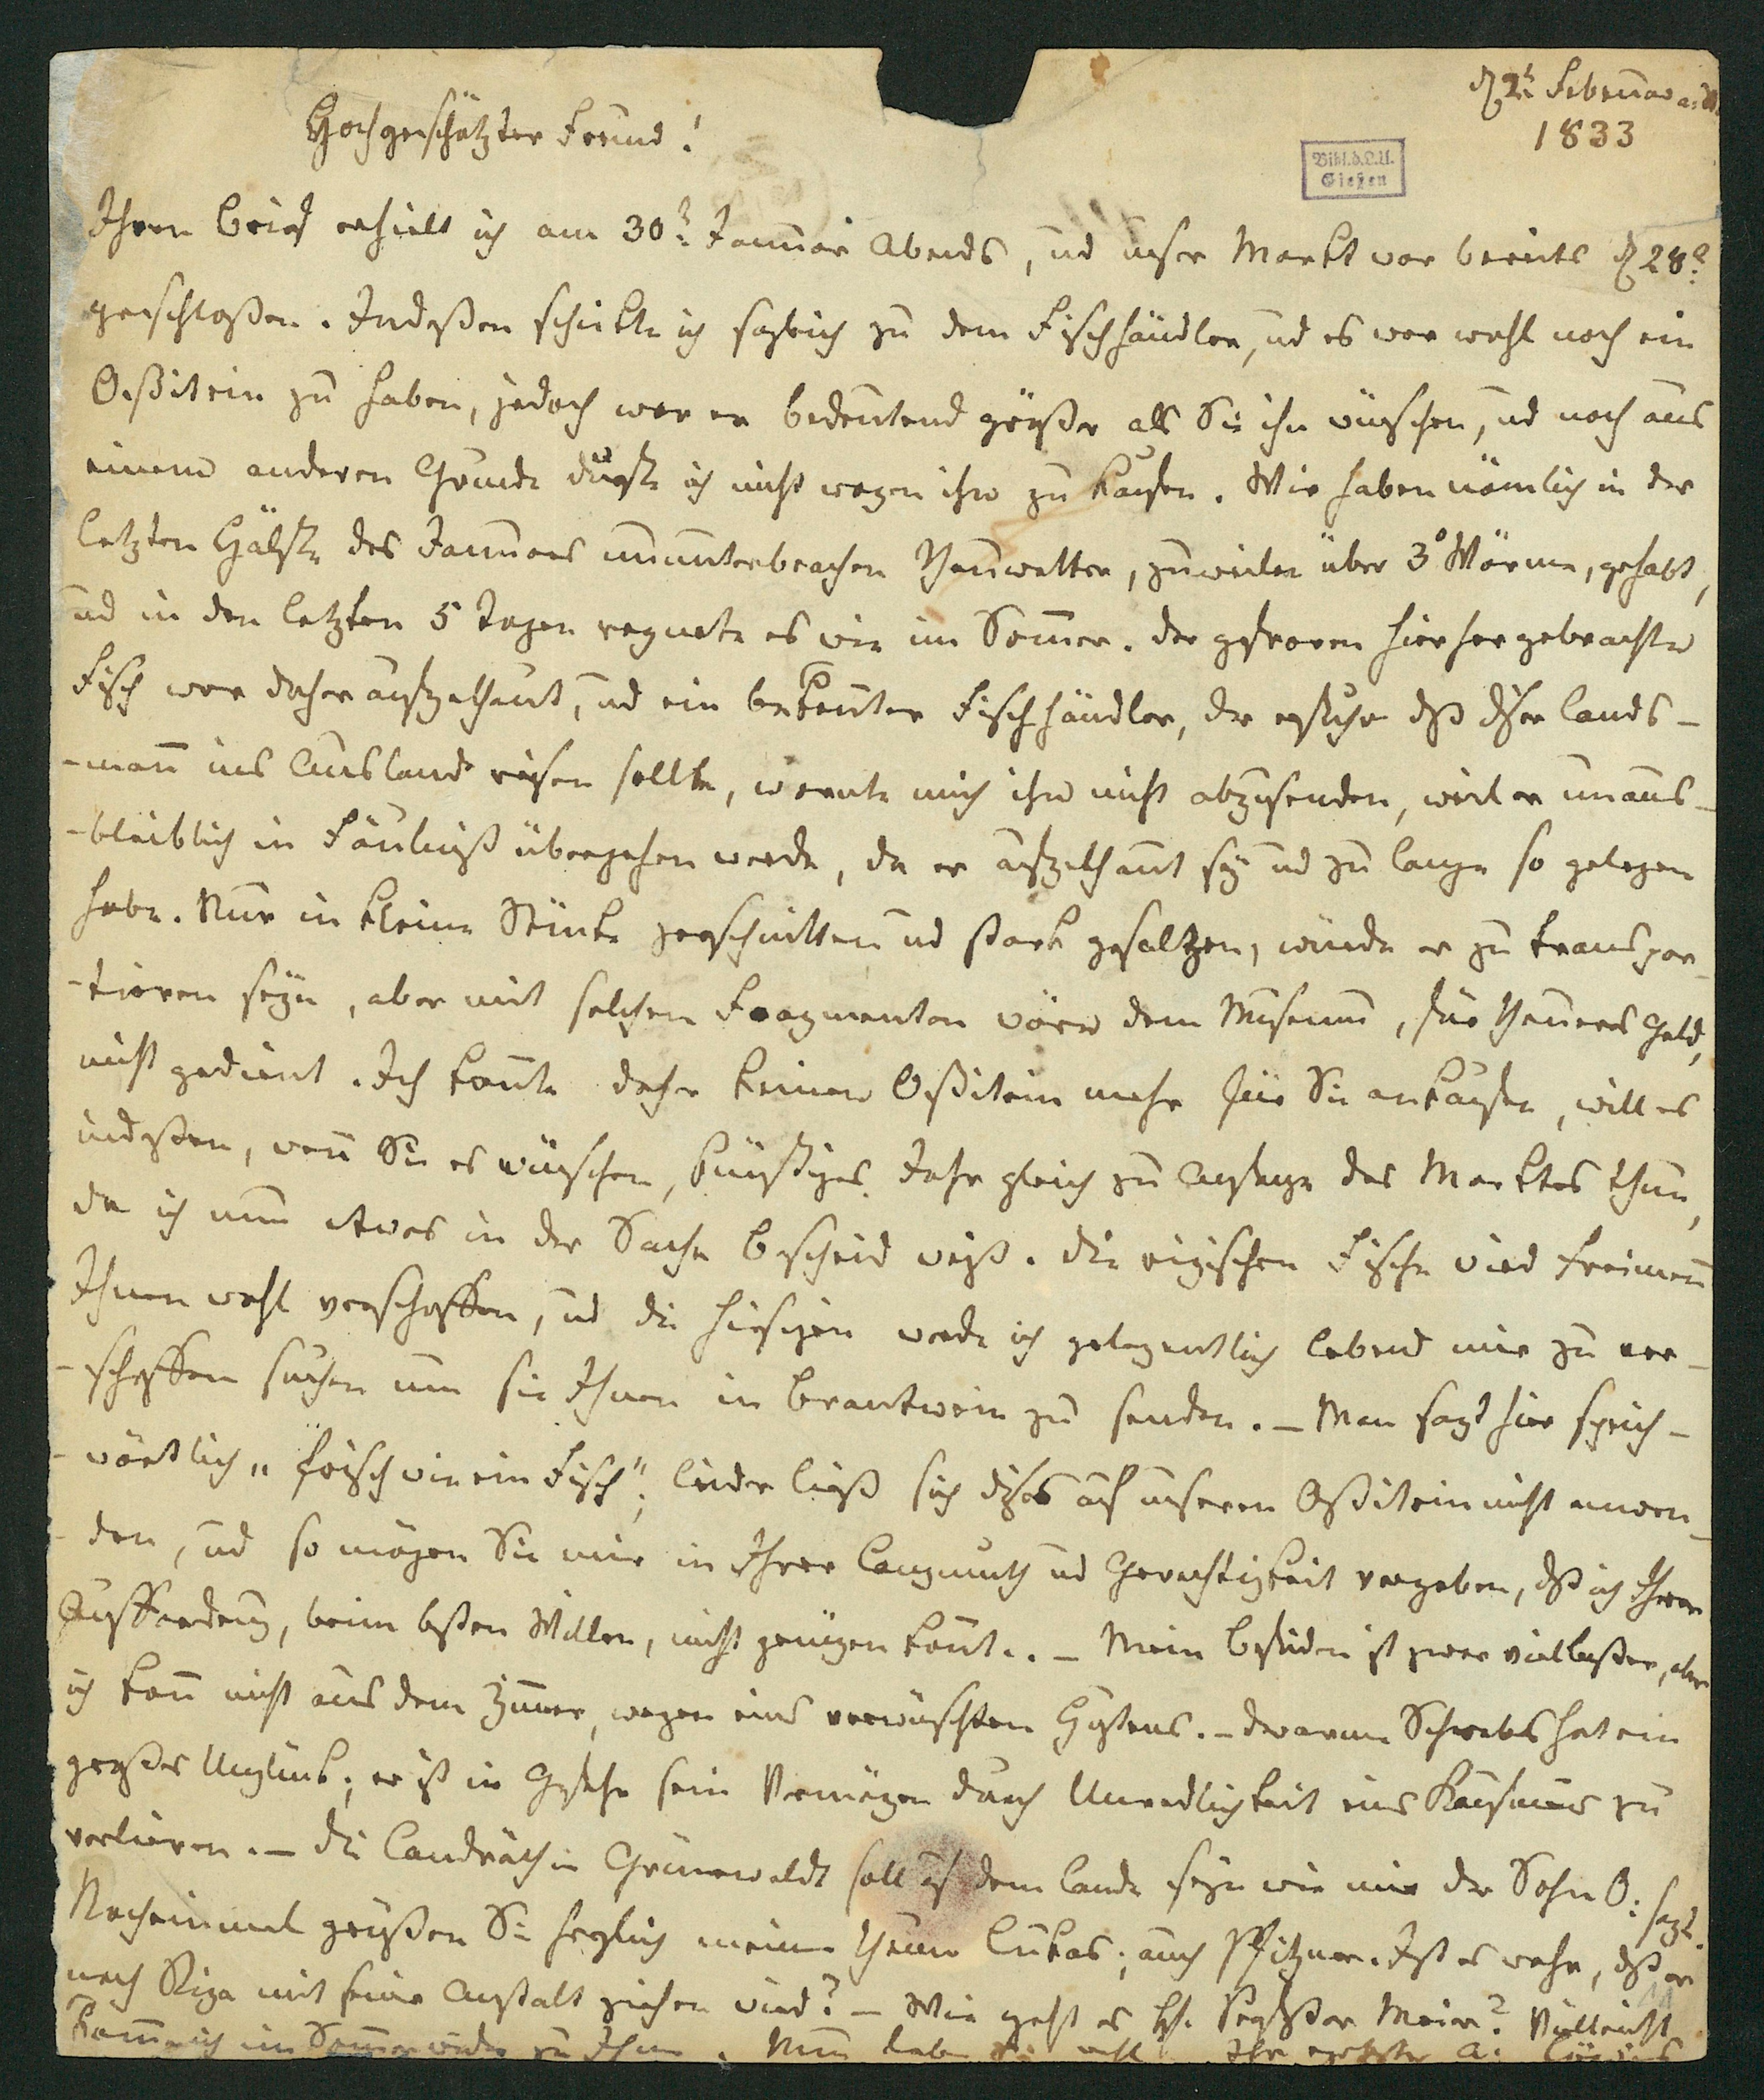 d. 2t Februar a. St.
1833
Hochgeschätzter Freund!
Bibl. d. L. U.
Gießen
Ihren Brief erhielt ich am 30t Januar Abends, und unser Markt war bereits d 28t
geschloßen. Indeßen schickte ich sogleich zu dem Fischhändler, und es war wohl noch ein
Oßitrin zu haben, jedoch war er bedeutend größer als Sie ihn wünschen, und noch aus
einem anderen Grunde durfte ich nicht wagen ihn zu kaufen. Wir haben nämlich in der
letzten Hälfte des Januars ununterbrochen Thauwetter, zuweilen über 3° Wärme, gehabt,
und in den letzten 5 Tagen regnete es wie im Sommer. Der gefroren hierher gebrachte
Fisch war daher aufgethaut, und ein bekannter Fischhändler, der erfuhr daß dieser Lands-
-mann ins Ausland reisen sollte, warnte mich ihn nicht abzusenden, weil er unaus-
-bleiblich in Fäulniß übergehen werde, da er aufgethaut sey und zu lange so gelegen
habe. Nur in kleine Stücke zerschnitten und stark gesaltzen, würde er zu transpor-
-tieren seyn, aber mit solchen Fragmenten wäre dem Museum, für theueres Geld,
nicht gedient. Ich konnte daher keinen Oßitrin mehr für Sie ankaufen, will es
indeßen, wenn Sie es wünschen, künftiges Jahr gleich zu Anfange des Marktes thun,
da ich nun etwas in der Sache Bescheid weiß. Die rigischen Fische wird Freimann
Ihnen wohl verschaffen, und die hiesigen werde ich gelegentlich lebend mir zu ver-
-schaffen suchen um sie Ihnen in Brantwein zu senden. – Man sagt hier sprich-
-wörtlich „frisch wie ein Fisch"; leider ließ sich dieses auf unseren Oßitrin nicht anwen-
-den, und so mögen Sie mir in Ihrer Langmuth und Gerechtigkeit vergeben, daß ich Ihrer
Aufforderung, beim besten Willen, nicht genügen konnte. – Mein Befinden ist zwar viel beßer, aber
ich kann nicht aus dem Zimmer, wegen eines verwünschten Hustens. – Schwabs hat ein
großes Unglück; er ist in Gefahr sein Vermögen durch Unredlichkeit eines Kaufmanns zu
verlieren. – Die Landräthin Grünewaldt soll auf dem Lande seyn wie mir der Sohn O: sagt.
Nocheinmal grüßen Sie herzlich meinen theuern Lukas; auch Pfitzner. Ist es wahr, daß er
nach Riga mit seiner Anstalt ziehen wird? – Wie geht es H. Meier? Vielleicht
komme ich im Sommer wieder zu Ihnen. Nun leben Sie wohl. Ihr A: